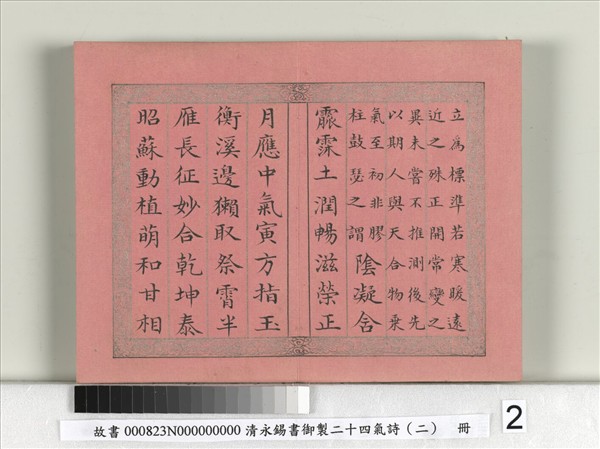 立為標準若寒暖遠
近之殊正閏常變之
異未嘗不推測後先
以期人與天合物乗
氣至初非膠
柱鼓瑟之謂
陰凝含
霢霂土潤暢滋榮正
月應中氣寅方指玉
衡溪邊獺取祭霄半
雁長征妙合乾坤泰
昭蘇動植萌和甘相
故書 000823N000000000 清永錫書御製二十四氣詩（二） 冊
2